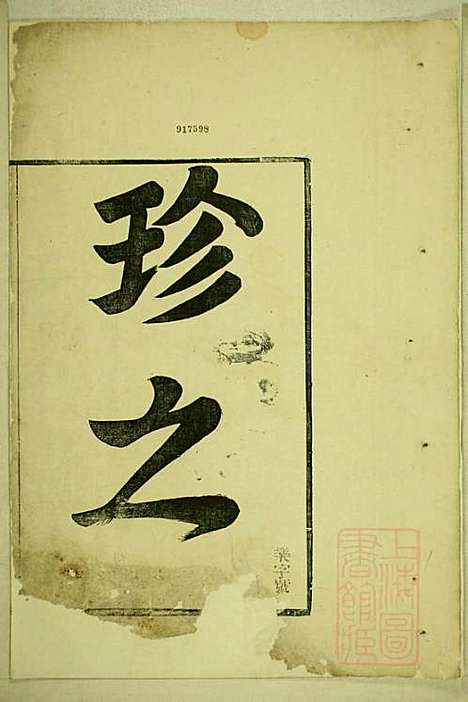 917598
珍之
上海圖
書館藏